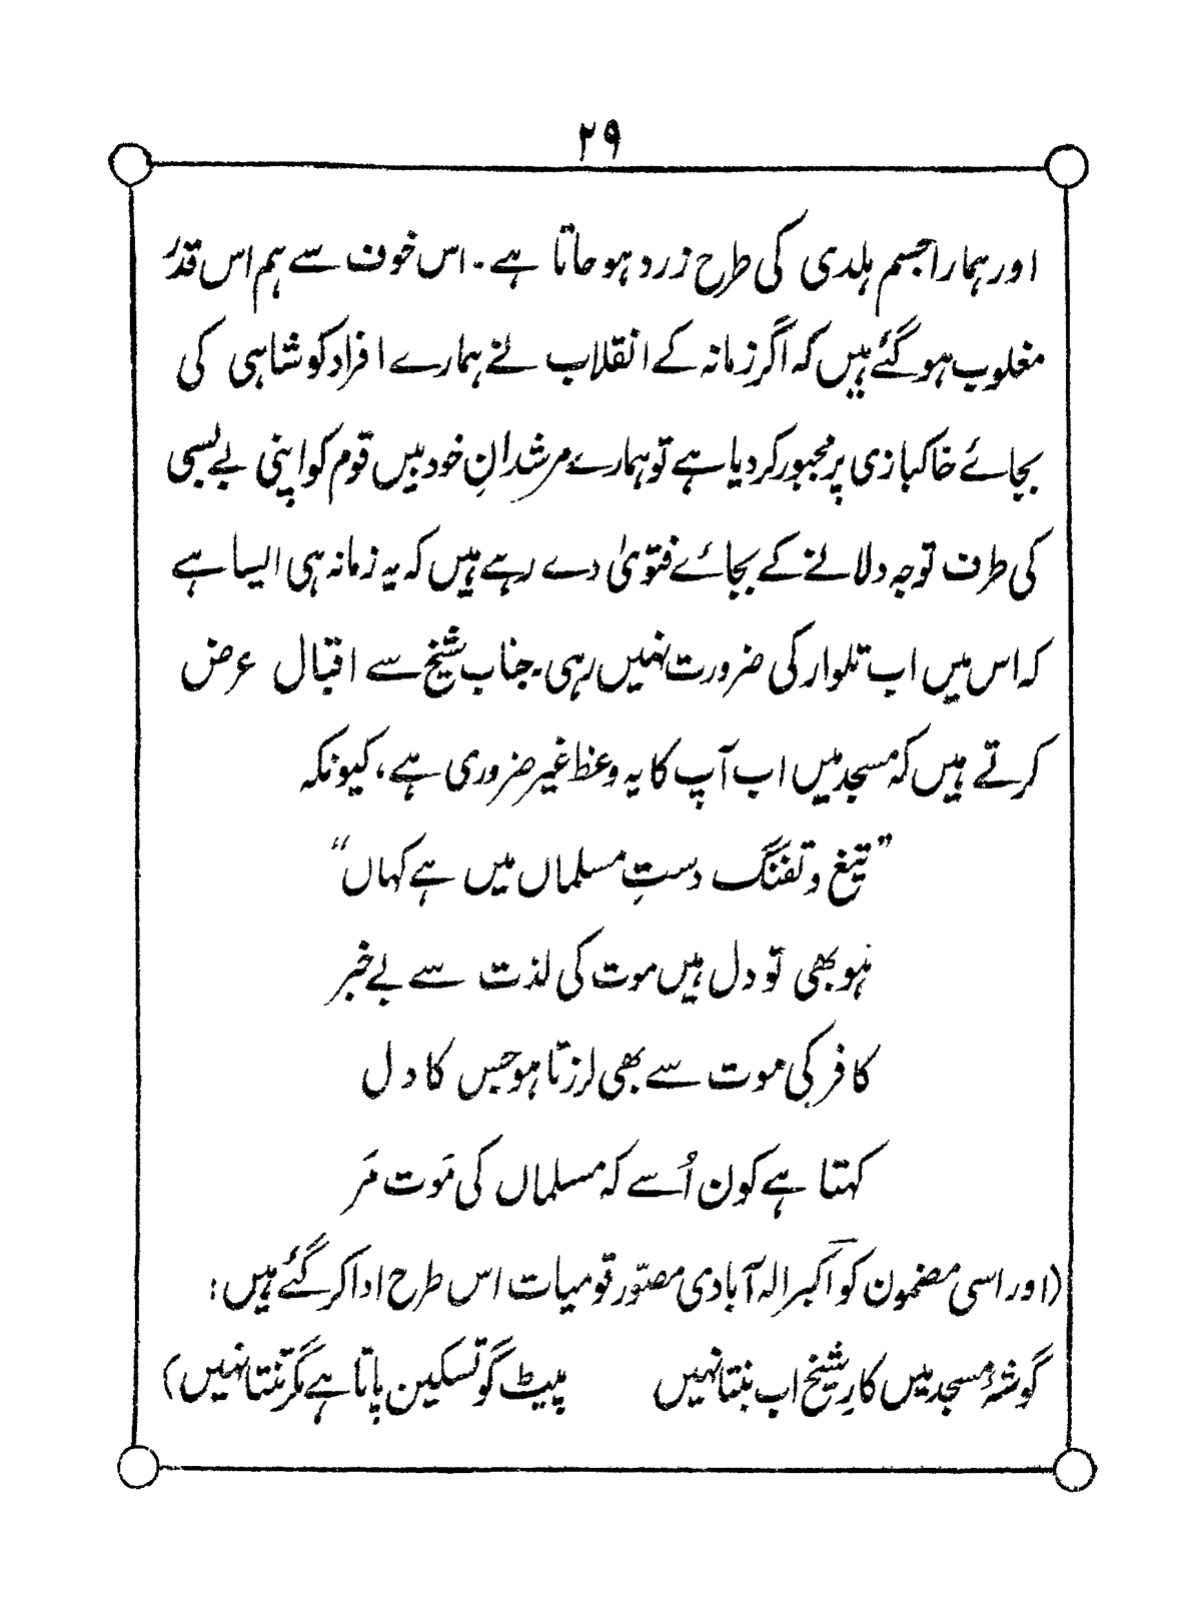 ۲۹
اور ہمارا جسم ہلدی کی طرح زرد ہو جاتا ہے۔ اس خوف سے ہم اس قدر
مغلوب ہو گئے ہیں کہ اگر زمانہ کے انقلاب نے ہمارے افراد کو شاہی کی
بجائے خاکبازی پر مجبور کر دیا ہے تو ہمارے مرشدانِ خود بیں قوم کو اپنی بے بسی
کی طرف توجہ دلانے کے بجائے فتویٰ دے رہے ہیں کہ یہ زمانہ ہی ایسا ہے
کہ اس میں اب تلوار کی ضرورت نہیں رہی۔ جناب شیخ سے اقبال عرض
کرتے ہیں کہ مسجد میں اب آپ کا یہ وعظ غیر ضروری ہے، کیونکہ
"تیغ و تفنگ دستِ مسلماں میں ہے کہاں"
ہو بھی تو دل ہیں موت کی لذت سے بے خبر
کافر کی موت سے بھی لرزتا ہو جس کا دل
کہتا ہے کون اُسے کہ مسلماں کی مَوت مَر
(اور اسی مضمون کو اکبر الہ آبادی مصوّر قومیات اس طرح ادا کر گئے ہیں:
گوشۂ مسجد میں کارِ شیخ اب بنتا نہیں پیٹ گو تسکین پاتا ہے مگر تنتا نہیں)